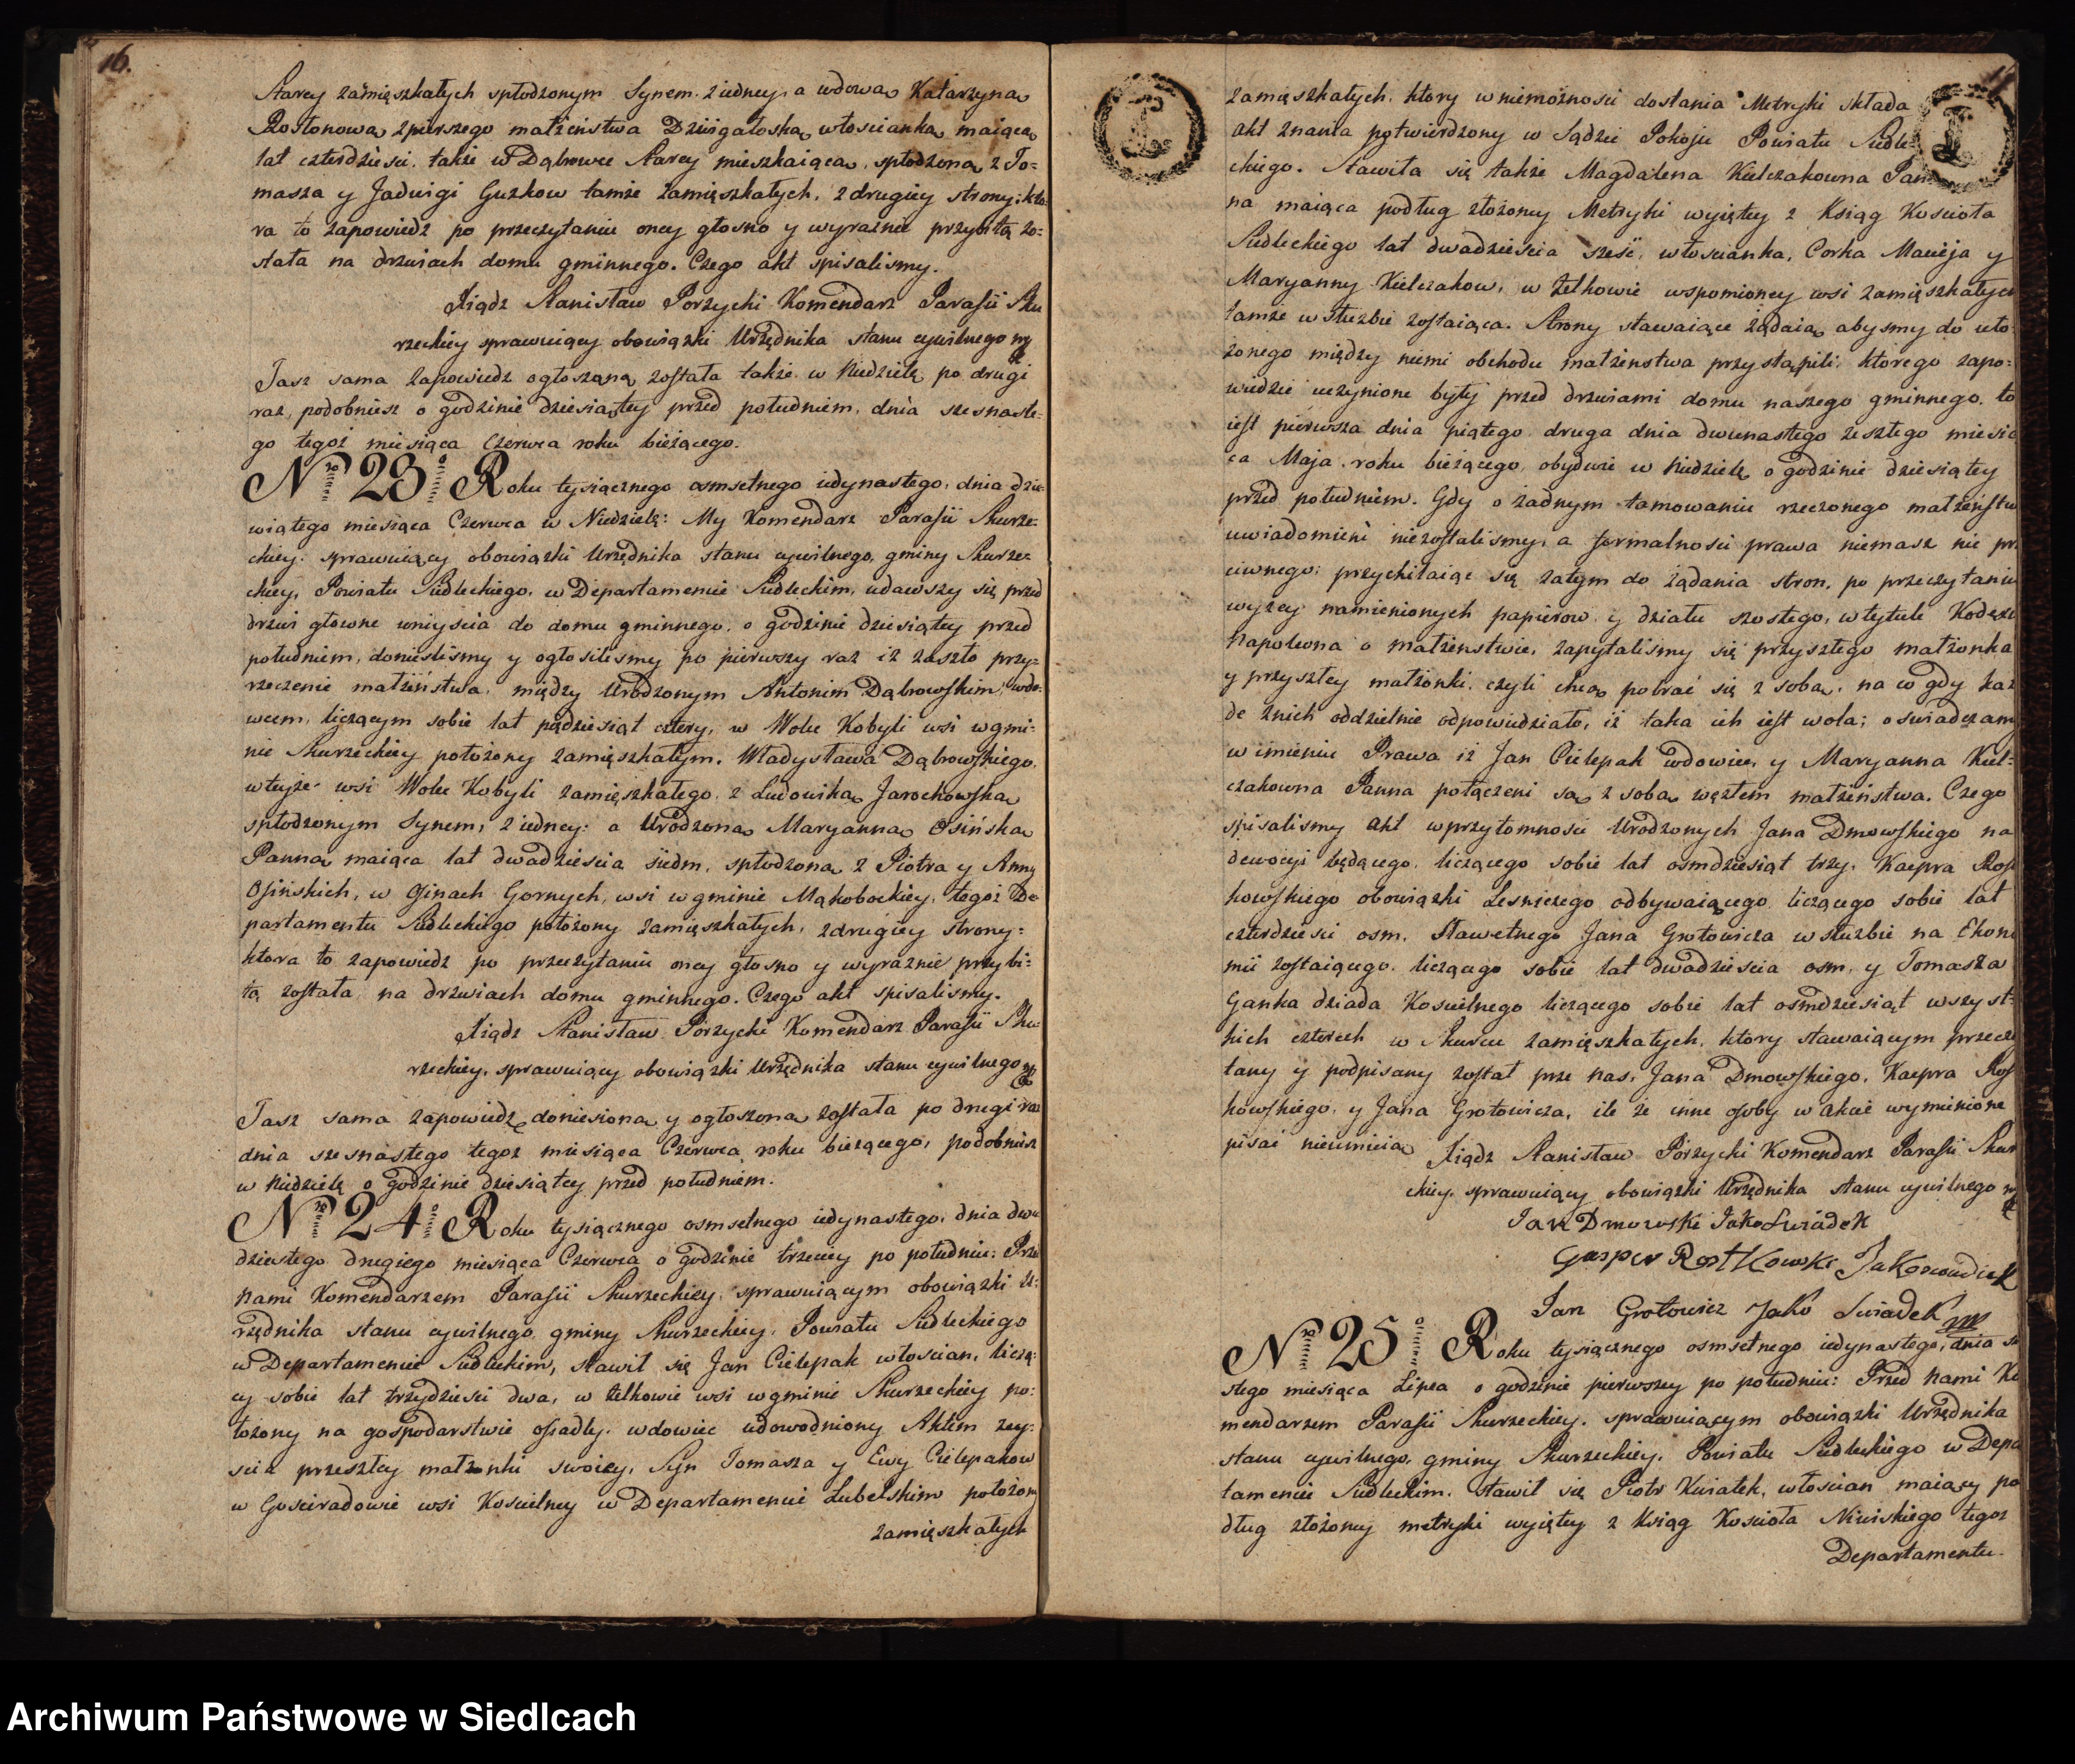 16.
Starey zamięszkałych spłodzonym Synem z iedney, a wdową Katarzyną
Rosłonową z pierszego małżeństwa Dziugałoską włoscianką maiącą
lat czterdziesci także w Dąbrowce Starey mieszkaiącą, spłodzoną z To=
masza y Jadwigi Guzkow tamże zamięszkałych, z drugiey strony; kto=
ra to zapowiedz po przeczytaniu oney głosno y wyraznie przybitą zo=
stała na drzwiach domu gminnego. Czego akt spisalismy.
Xiądz Stanisław Porzycki Komendarz Parafii Sku
rzeckiey sprawuiący obowiązki Urzędnika stanu cywilnego mp
Taż sama zapowiedz ogłoszoną została także w Niedzielę po drugi
raz, podobniesz o godzinie dziesiątey przed południem, dnia szesnaste=
go tegoż miesiąca Czerwca roku bieżącego.
Nro 23o Roku tysiącznego osmsetnego iedynastego, dnia dzie=
wiątego miesiąca Czerwca w Niedzielę: My Komendarz Parafii Skurze=
ckiey sprawuiący obowiązki Urzędnika stanu cywilnego, gminy Skurze=
ckiey, Powiatu Siedleckiego, w Departamencie Siedleckim, udawszy się przed
drzwi głowne wniyscia do domu gminnego, o godzinie dziesiątey przed
południem, donieslismy y ogłosilismy po pierwszy raz iż zaszło przy=
rzeczenie małżeństwa, między Urodzonym Antonim Dąbrowskim, wdo=
wcem, liczącym sobie lat pędziesiąt cztery, w Wolce Kobyli wsi w gmi=
nie Skurzeckiey położoney zamięszkałym. Władysława Dąbrowskiego,
w teyże wsi Wolce Kobyli zamięszkałego, z Ludowiką Jarochowską
spłodzonym Synem, z iedney: a Urodzoną Maryanną Osińską
Panną maiącą lat dwadziescia siedm, spłodzoną z Piotra y Anny
Osińskich, w Osinach Gornych, wsi w gminie Mąkobockiey, tegoż De
partamentu Siedleckiego położoney zamięszkałych, z drugiey strony=
ktora to zapowiedz po przeczytaniu oney głosno y wyraznie przybi=
tą została na drzwiach domu gminnego. Czego akt spisalismy.
Xiądz Stanisław Porzycki Komendarz Parafii Sku
rzeckiey, sprawuiący obowiązki Urzędnika stanu cywilnego mp
Taż sama zapowiedz doniesioną y ogłoszoną została po drugi raz
dnia szesnastego tegoż miesiąca Czerwca roku bieżącego, podobniesz
w Niedzielę o godzinie dziesiątey przed południem.
Nro 24o Roku tysiącznego osmsetnego iedynastego, dnia dwu
dziestego drugiego miesiąca Czerwca o godzinie trzeciey po południu: Prze
Nami Komendarzem Parafii Skurzeckiey, sprawuiącym obowiązki U=
rzędnika stanu cywilnego gminy Skurzeckiey, Powiatu Siedleckiego
w Departamencie Siedleckim, stawił się Jan Cielepak włoscian, liczą=
cy sobie lat trzydziesci dwa, w Żelkowie wsi w gminie Skurzeckiey po=
łożoney na gospodarstwie osiadły, wdowiec udowodniony Aktem zey=
scia przeszłey małżonki swoiey, Syn Tomasza y Ewy Cielepakow
w Gosciradowie wsi Koscielney w Departamencie Lubelskim położoney
zamięszkałych
zamięszkałych, ktory w niemożnosci dostania Metryki składa
akt znania potwierdzony w Sądzie Pokoju Powiatu Siedle=
ckiego. Stawiła się także Magdalena Kielczakowna Pan=
na maiąca podług złożoney Metryki wyiętey z Ksiąg Koscioła
Siedleckiego lat dwadziescia szesć, włoscianka, Corka Macieja y
Maryanny Kielczakow, w Żelkowie wspomioney wsi zamięszkałych
tamże w służbie zostaiąca. Strony stawaiące żądaią abysmy do uło=
żonego między niemi obchodu małżenstwa przystąpili, ktorego zapo=
wiedzie uczynione były przed drzwiami domu naszego gminnego, to
iest pierwsza dnia piątego, druga dnia dwunastego zeszłego miesią
ca Maja roku bieżącego, obydwie w Niedzielę o godzinie dziesiątey
przed południem. Gdy o żadnym tamowaniu rzeczonego małżeństw
uwiadomieni niezostalismy, a formalnosci prawa niemasz nic prz
ciwnego: przychilaiąc się zatym do żądania stron, po przeczytaniu
wyżey namienionych papierow y działu szostego, w tytule Kodexu
Napoleona o małżenstwie, zapytalismy się przyszłego małżonka
y przyszłey małżonki, czyli chcą pobrać się z sobą, na co gdy każ
de znich oddzielnie odpowiedziało, iż taka ich iest wola; oswiadczamy
w imieniu Prawa iż Jan Cielepak wdowiec, y Maryanna Kiel=
czakowna Panna połączeni są z sobą węzłem małżeństwa. Czego
spisalismy Akt w przytomnosci Urodzonych Jana Dmowskiego na
dewocyi będącego, liczącego sobie lat osmdziesiąt trzy, Kacpra Rost
kowskiego obowiązki Lesniczego odbywaiącego liczącego sobie lat
czterdziesci osm, Sławetnego Jana Grotowicza w służbie na Ekono
mii zostaiącego, liczącego sobie lat dwadziescia osm, y Tomasza
Ganka dziada Koscielnego liczącego sobie lat osmdziesiąt wszyst=
kich czterech w Skurcu zamięszkałych, ktory stawaiącym przeczy
tany y podpisany został prze nas, Jana Dmowskiego, Kacpra Rost
kowskiego, y Jana Grotowicza, ile że inne osoby w akcie wymienione
pisać nieumieią Xiądz Stanisław Porzycki Komendarz Parafii Skurz
ckiey, sprawuiący obowiązki Urzędnika stanu cywilnego mp
Jan Dmowski Jako Swiadek
Gasper Rostkowski Jako swiadek
Jan Grotowicz Jako Swiadek mp
Nro 25o Roku tysiącznego osmsetnego iedynastego, dnia
stego miesiąca Lipca o godzinie pierwszey po południu: Przed Nami Ko
mendarzem Parafii Skurzeckiey, sprawuiącym obowiązki Urzędnika
stanu cywilnego, gminy Skurzeckiey, Powiatu Siedleckiego w Depar
tamencie Siedleckim, stawił się Piotr Kwiatek, włoscian maiący po
dług złożoney metryki wyiętey z Ksiąg Koscioła Niwiskiego tegoż
Departamentu
Archiwum Państwowe w Siedlcach